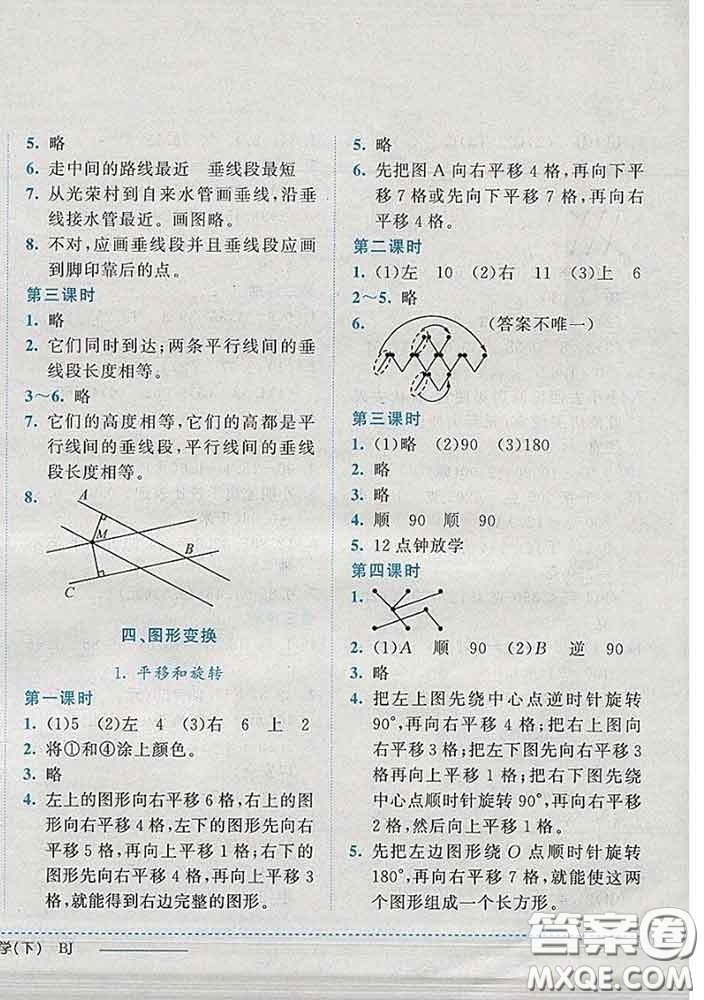 5. 略
6. 走中间的路线最近　垂线段最短
7. 从光荣村到自来水管画垂线,沿垂
线接水管最近。画图略。
8. 不对,应画垂线段并且垂线段应画
到脚印靠后的点。
第三课时
1. 略
2. 它们同时到达;两条平行线间的垂
线段长度相等。
3～6. 略
7. 它们的高度相等,它们的高都是平
行线间的垂线段,平行线间的垂线
段长度相等。
8.
A
M
B
C
四、图形变换
1. 平移和旋转
第一课时
1. (1)5　(2)左　4　(3)右　6　上　2
2. 将①和④涂上颜色。
3. 略
4. 左上的图形向右平移6格,右上的图
形向右平移4格,左下的图形先向右
平移5格,再向上平移4格,右下的图
形先向右平移1格,再向上平移3格,
就能得到右边完整的图形。
学(下)　BJ
5. 略
6. 先把图A向右平移4格,再向下平
移7格或先向下平移7格,再向右
平移4格。
第二课时
1. (1)左　10　(2)右　11　(3)上　6
2～5. 略
6. (答案不唯一)
第三课时
1. (1)略　(2)90　(3)180
2. 略
3. 略
4. 顺　90　顺　90
5. 12点钟放学
第四课时
1.
2. (1)A　顺　90　(2)B　逆　90
3. 略
4. 把左上图先绕中心点逆时针旋转
90°,再向右平移4格;把右上图向
右平移3格;把左下图先向右平移3
格再向上平移1格;把右下图先绕
中心点顺时针旋转90°,再向右平移
2格,然后向上平移1格。
5. 先把左边图形绕O点顺时针旋转
180°,再向右平移7格,就能使这两
个图形组成一个长方形。
答案圈
MXQE.COM